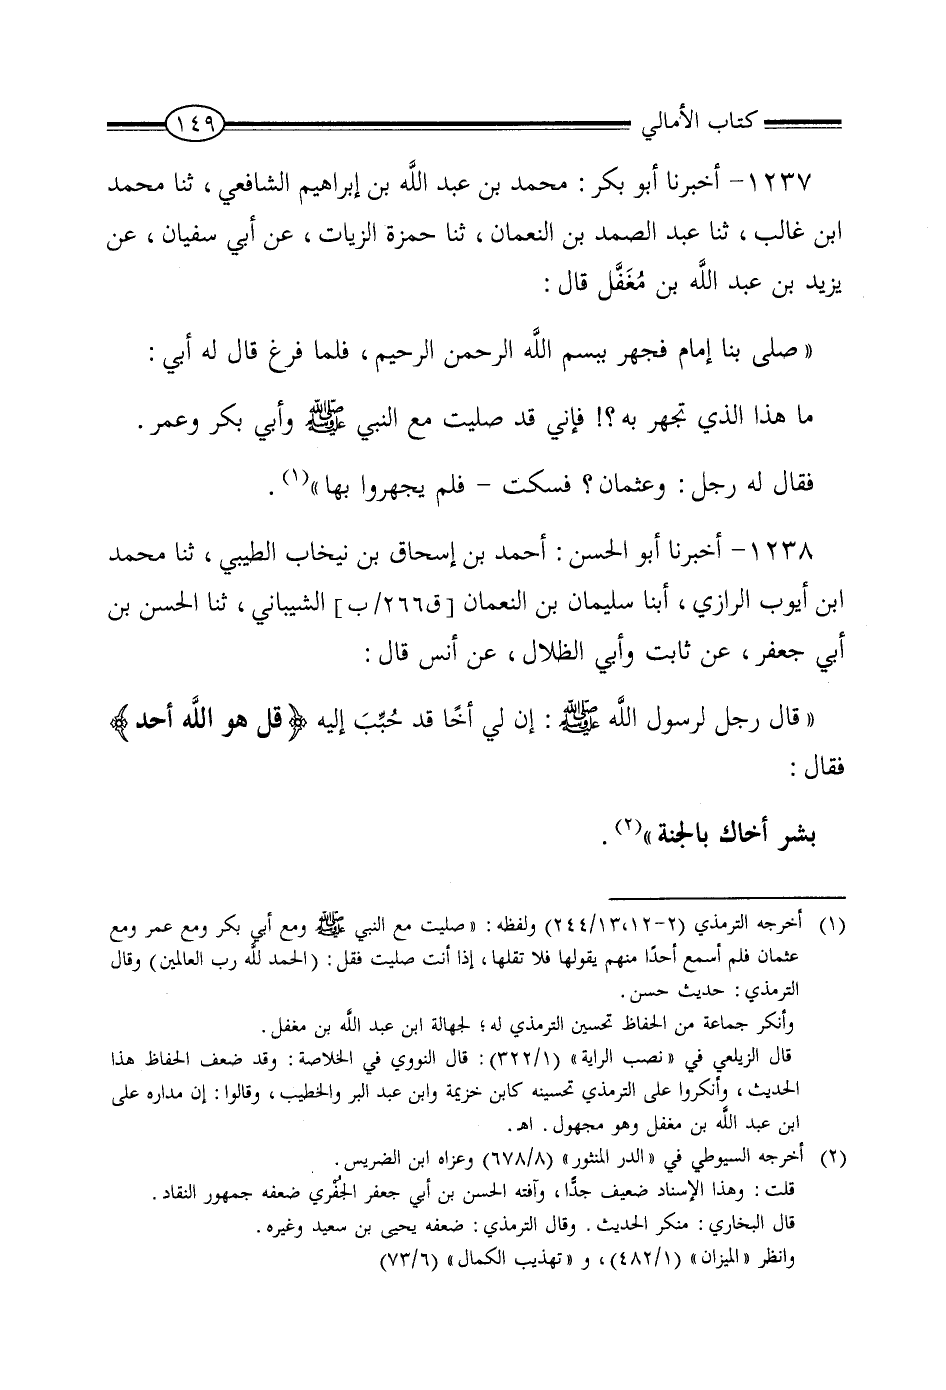 كتاب الأمالي ١٤٩
١٢٣٧- أخبرنا أبو بكر : محمد بن عبد اللَّه بن إبراهيم الشافعي ، ثنا محمد
ابن غالب ، ثنا عبد الصمد بن النعمان ، ثنا حمزة الزيات ، عن أبي سفيان ، عن
يزيد بن عبد اللَّه بن مُغَفَّل قال :
« صلى بنا إمام فجهر ببسم اللَّه الرحمن الرحيم ، فلما فرغ قال له أبي :
ما هذا الذي تجهر به ؟! فإني قد صليت مع النبي ﷺ وأبي بكر وعمر .
فقال له رجل : وعثمان ؟ فسكت - فلم يجهروا بها »(١) .
١٢٣٨- أخبرنا أبو الحسن : أحمد بن إسحاق بن نيخاب الطيبي ، ثنا محمد
ابن أيوب الرازي ، أبنا سليمان بن النعمان [ق٢٦٦/ ب] الشيباني ، ثنا الحسن بن
أبي جعفر ، عن ثابت وأبي الظلال ، عن أنس قال :
« قال رجل لرسول اللَّه ﷺ : إن لي أخًا قد حُبِّبَ إليه ﴿قل هو اللَّه أحد﴾
فقال :
بشر أخاك بالجنة »(٢) .
(١) أخرجه الترمذي (٢-١٢،١٣/٢٤٤) ولفظه : « صليت مع النبي ﷺ ومع أبي بكر ومع عمر ومع
عثمان فلم أسمع أحدًا منهم يقولها فلا تقلها ، إذا أنت صليت فقل : (الحمد للَّه رب العالمين) وقال
الترمذي : حديث حسن .
وأنكر جماعة من الحفاظ تحسين الترمذي له ؛ لجهالة ابن عبد اللَّه بن مغفل .
قال الزيلعي في « نصب الراية » (٣٢٢/١) : قال النووي في الخلاصة : وقد ضعف الحفاظ هذا
الحديث ، وأنكروا على الترمذي تحسينه كابن خزيمة وابن عبد البر والخطيب ، وقالوا : إن مداره على
ابن عبد اللَّه بن مغفل وهو مجهول . اهـ .
(٢) أخرجه السيوطي في « الدر المنثور » (٦٧٨/٨) وعزاه ابن الضريس .
قلت : وهذا الإسناد ضعيف جدًّا ، وآفته الحسن بن أبي جعفر الجُفْري ضعفه جمهور النقاد .
قال البخاري : منكر الحديث . وقال الترمذي : ضعفه يحيى بن سعيد وغيره .
وانظر « الميزان » (٤٨٢/١) ، و « تهذيب الكمال » (٧٣/٦)